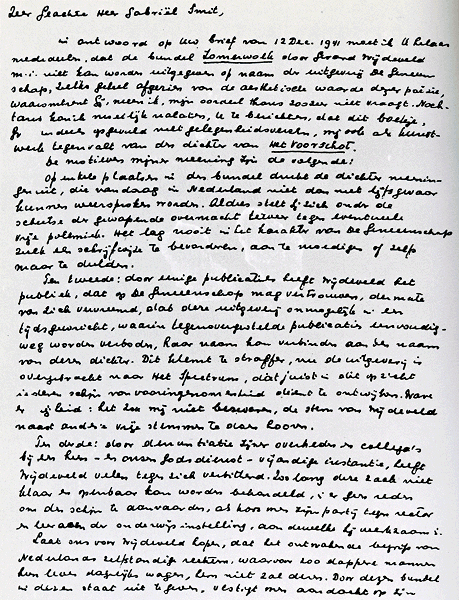 Zeer Geachte Heer Gabriël Smit,
in antwoord op Uw brief van 12 Dec. 1941 moet ik U helaas
mededelen, dat de bundel Zomerwolk door Gerard Wijdeveld
m.i. niet kan worden uitgegeven op naam der uitgeverij De Gemeen-
schap, zulks geheel afgezien van de aesthetische waarde dezer poëzie,
waaromtrent Gij, meen ik, mijn oordeel thans zoozeer niet vraagt. Noch-
tans kan ik moeilijk nalaten, U te berichten, dat dit boekje,
indien opgevuld met gelegenheidsverzen, mij ook als kunst-
werk tegenvalt van den dichter van Het Voorschot.
De motieven mijner meening zijn de volgende:
Op enkele plaatsen in den bundel drukt de dichter meenin-
gen uit, die vandaag in Nederland niet dan met lijfsgevaar
kunnen weersproken worden. Aldus stelt hij zich onder de
schutse der gewapende overmacht tegen eventueele
vrije polemiek. Het lag nooit in het karakter van De Gemeenschap
zulk een schrijfwijze te bevorderen, aan te moedigen of zelfs
maar te dulden.
Ten tweede: door eenige publicaties heeft Wijdeveld het
publiek, dat op De Gemeenschap mag vertrouwen, dermate
van zich vervreemd, dat deze uitgeverij onmogelijk in een
tijdsgewricht, waarin tegenovergestelde publicaties eenvoudig-
weg worden verboden, haar naam kan verbinden aan den naam
van dezen dichter. Dit klemt te straffer, nu de uitgeverij is
overgebracht naar Het Spectrum, dat juist in dit opzicht
iederen schijn van vooringenomenheid dient te ontwijken. Ware
er vrijheid: het zou mij niet bezwaren, de stem van Wijdeveld
naast andere vrije stemmen te doen hooren.
Ten derde: door denuntiatie zijner overheden en collega's
bij een hem- en onzen godsdienst-vijandige instantie, heeft
Wijdeveld velen tegen zich verbitterd. Zoo lang deze zaak niet
klaar en openbaar kan worden behandeld, is er geen reden
om den schijn te aanvaarden, als kozen wij zijn partij tegen rector
en leeraren der onderwijsinstelling, aan dewelke hij werkzaam is.
Laat ons voor Wijdeveld hopen, dat het ontwakende begrip van
Nederlands zelfstandige rechten, waarvoor zoo dappere mannen
hun leven dagelijks wagen, hem niet zal deren. Door dezen bundel
in dezen staat uit te geven, vestigt men aandacht op zijn